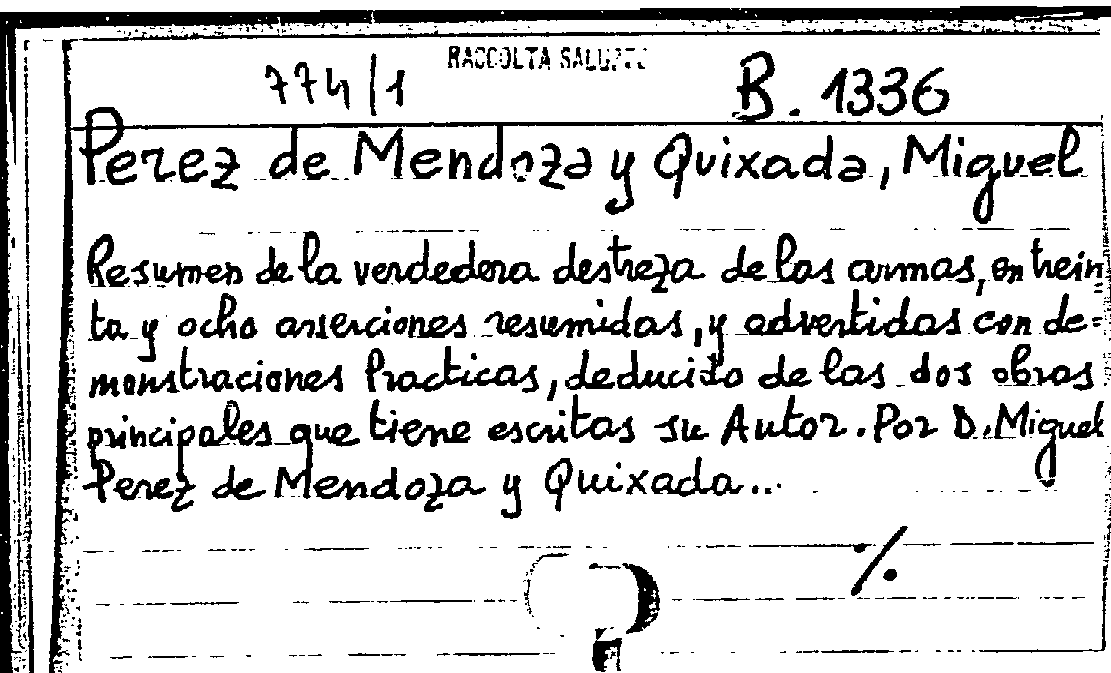 RACCOLTA SALUZZO
774/1 B. 1336
Perez de Mendoza y Quixada, Miguel
Resumen de la verdedera destreza de las armas, en trein
ta y ocho asserciones resumidas, y advertidas con de=
monstraciones Practicas, deducido de las dos obras
principales que tiene escritas su Autor. Por D. Miguel
Perez de Mendoza y Quixada...
./.